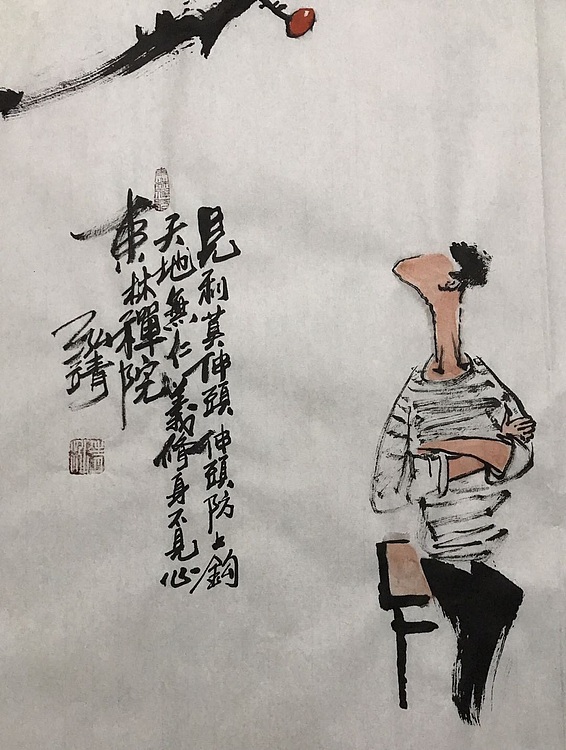 見利莫伸頭伸頭防上鈎
天地無仁義修身不見心
東林禪院
弘靖